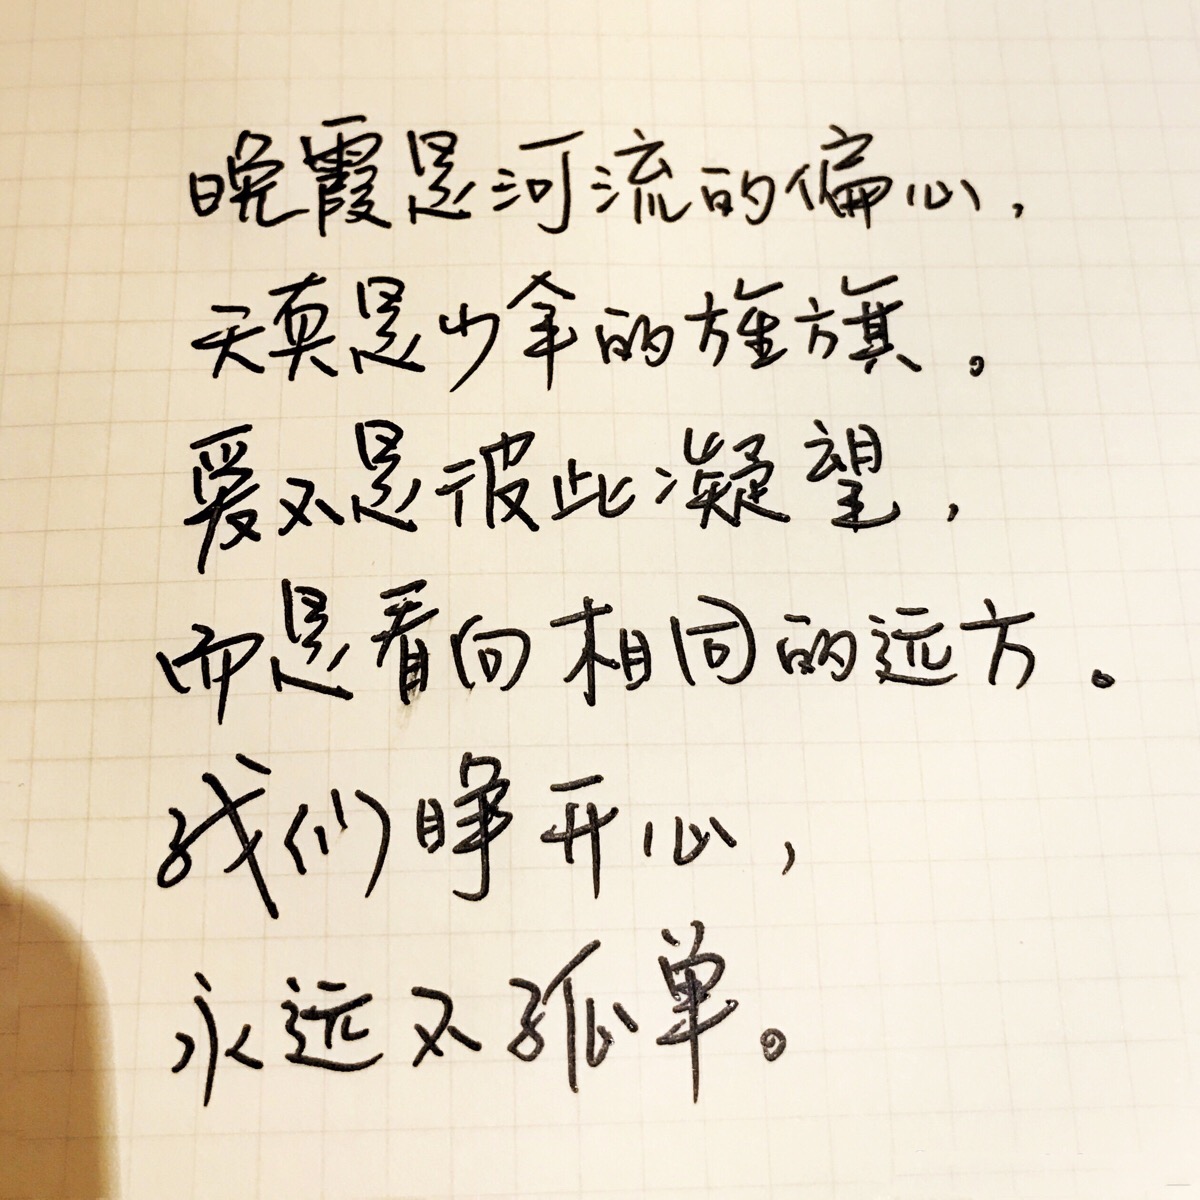 晚霞是河流的偏心，
天真是少年的旌旗。
爱不是彼此凝望，
而是看向相同的远方。
我们睁开心，
永远不孤单。